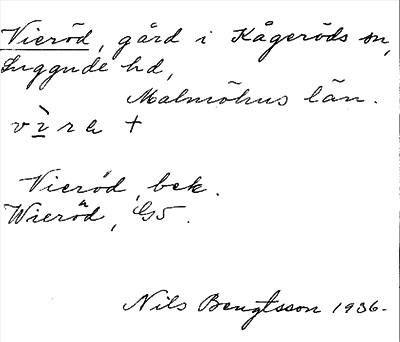 Vieröd, gård i Kågeröds sn,
Luggude hd,
Malmöhus län.
v ì r a +
Vieröd, bek.
Wieröd,
Nils Bengtsson 1936.